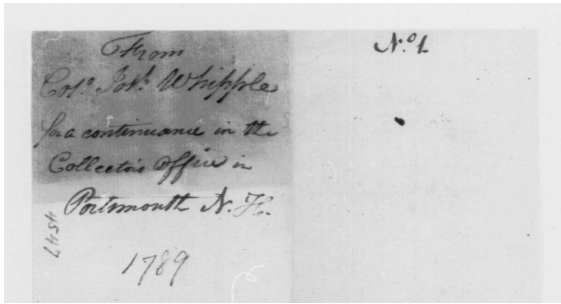 From
Colo. Jos. Whipple
for a continuance in the
Collector's Office in
Portsmouth N. H.
4547
1789
No. 1